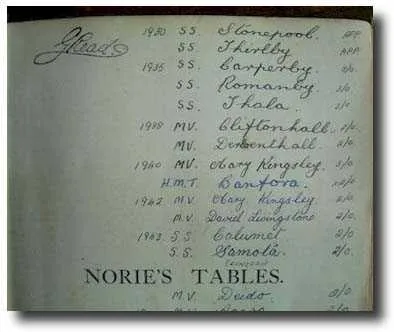 G Read.
1930 S.S. Stonepool. APP.
S.S. Thirlby APP.
1935 S.S. Carperby. 3/0.
S.S. Romanby. 3/0.
S.S. Thala. 3/0.
1938 M.V. Cliftonhall. 2/0.
M.V. Derwenthall. 2/0.
1940 M.V. Mary Kingsley. 3/0.
H.M.T. Bantora.
1942 M.V. Mary Kingsley. 2/0.
M.V. David Livingstone 2/0.
1943 S.S. Calumet 2/0.
S.S. Samota. 2/0.
NORIE'S TABLES.
M.V. Deido.